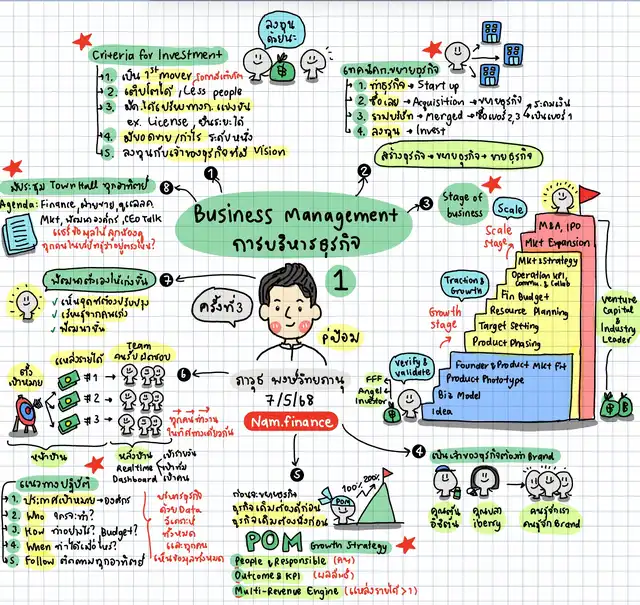 Business Management
การบริหารธุรกิจ
1
ครั้งที่ 3
คุ่ป้อม
ภาวุธ พงษ์วิทยภานุ
7/5/68
Nam.finance
1
Criteria for Investment
1. เป็น 1st mover
2. เติบโตได้, Less people
ex. License,
4. มียอดขาย/กำไร ระดับหนึ่ง
5. ลงทุนกับเจ้าของธุรกิจที่มี Vision
ลงทุน
ด้วยนะ
2
เทคนิคก.ขยายธุรกิจ
1. ทำธุรกิจ → Start up
2. ซื้อเลย → Acquisition → ขยายธุรกิจ
3. รวมบริษัท → Merged → ซื้อเบอร์ 2,3 → เป็นเบอร์ 1
4. ลงทุน → Invest
สร้างธุรกิจ → ขยายธุรกิจ → ขายธุรกิจ
3
Stage of
business
Scale
Scale
stage
M&A, IPO
Mkt Expansion
Mkt Strategy
Operation KPI,
Commu. & Collab
Fin Budget
Resource Planning
Target Setting
Product Phasing
Traction &
Growth
Growth
stage
Founder & Product Mkt Fit
Product Phototype
Biz Model
Idea
verify &
validate
FFF
Angel
Investor
Venture
Capital &
Industry
Leader
4
เป็นเจ้าของธุรกิจต้องทำ Brand
คุณตัน
อิชิตัน
คุณปลา
iberry
คนรู้จักเรา
คนรู้จัก Brand
5
ก่อนจะขยายธุรกิจ
ธุรกิจเดิมต้องดีก่อน
ธุรกิจเดิมต้องนิ่งก่อน
POM
100%
200%
POM Growth Strategy
People & Responsible (คน)
Outcome & KPI (ผลลัพธ์)
Multi-Revenue Engine (แหล่งรายได้ > 1)
6
ตั้ง
เป้าหมาย
แหล่งรายได้
#1
#2
#3
Team
คนรับผิดชอบ
ทุกคนทำงาน
ในทิศทางเดียวกัน
หน้าบ้าน
หลังบ้าน
Realtime
Dashboard
แนวทางปฏิบัติ
1. ประกาศเป้าหมาย → องค์กร
2. Who ใครจะทำ?
3. How ทำอย่างไร? Budget?
4. When ทำได้เมื่อไหร่?
5. Follow ติดตามทุกอาทิตย์
บริหารธุรกิจ
ด้วย Data
วิเคราะห์
ทั้งหมด
และทุกคน
เห็นข้อมูลทั้งหมด
7
พัฒนาตัวเองให้เก่งขึ้น
เห็นจุดที่ต้องปรับปรุง
เรียนรู้จากคนเก่ง
พัฒนาขึ้น
8
มีประชุม Town Hall ทุกอาทิตย์
Agenda: Finance, ฝ่ายขาย,
Mkt, พัฒนาองค์กร, CEO Talk